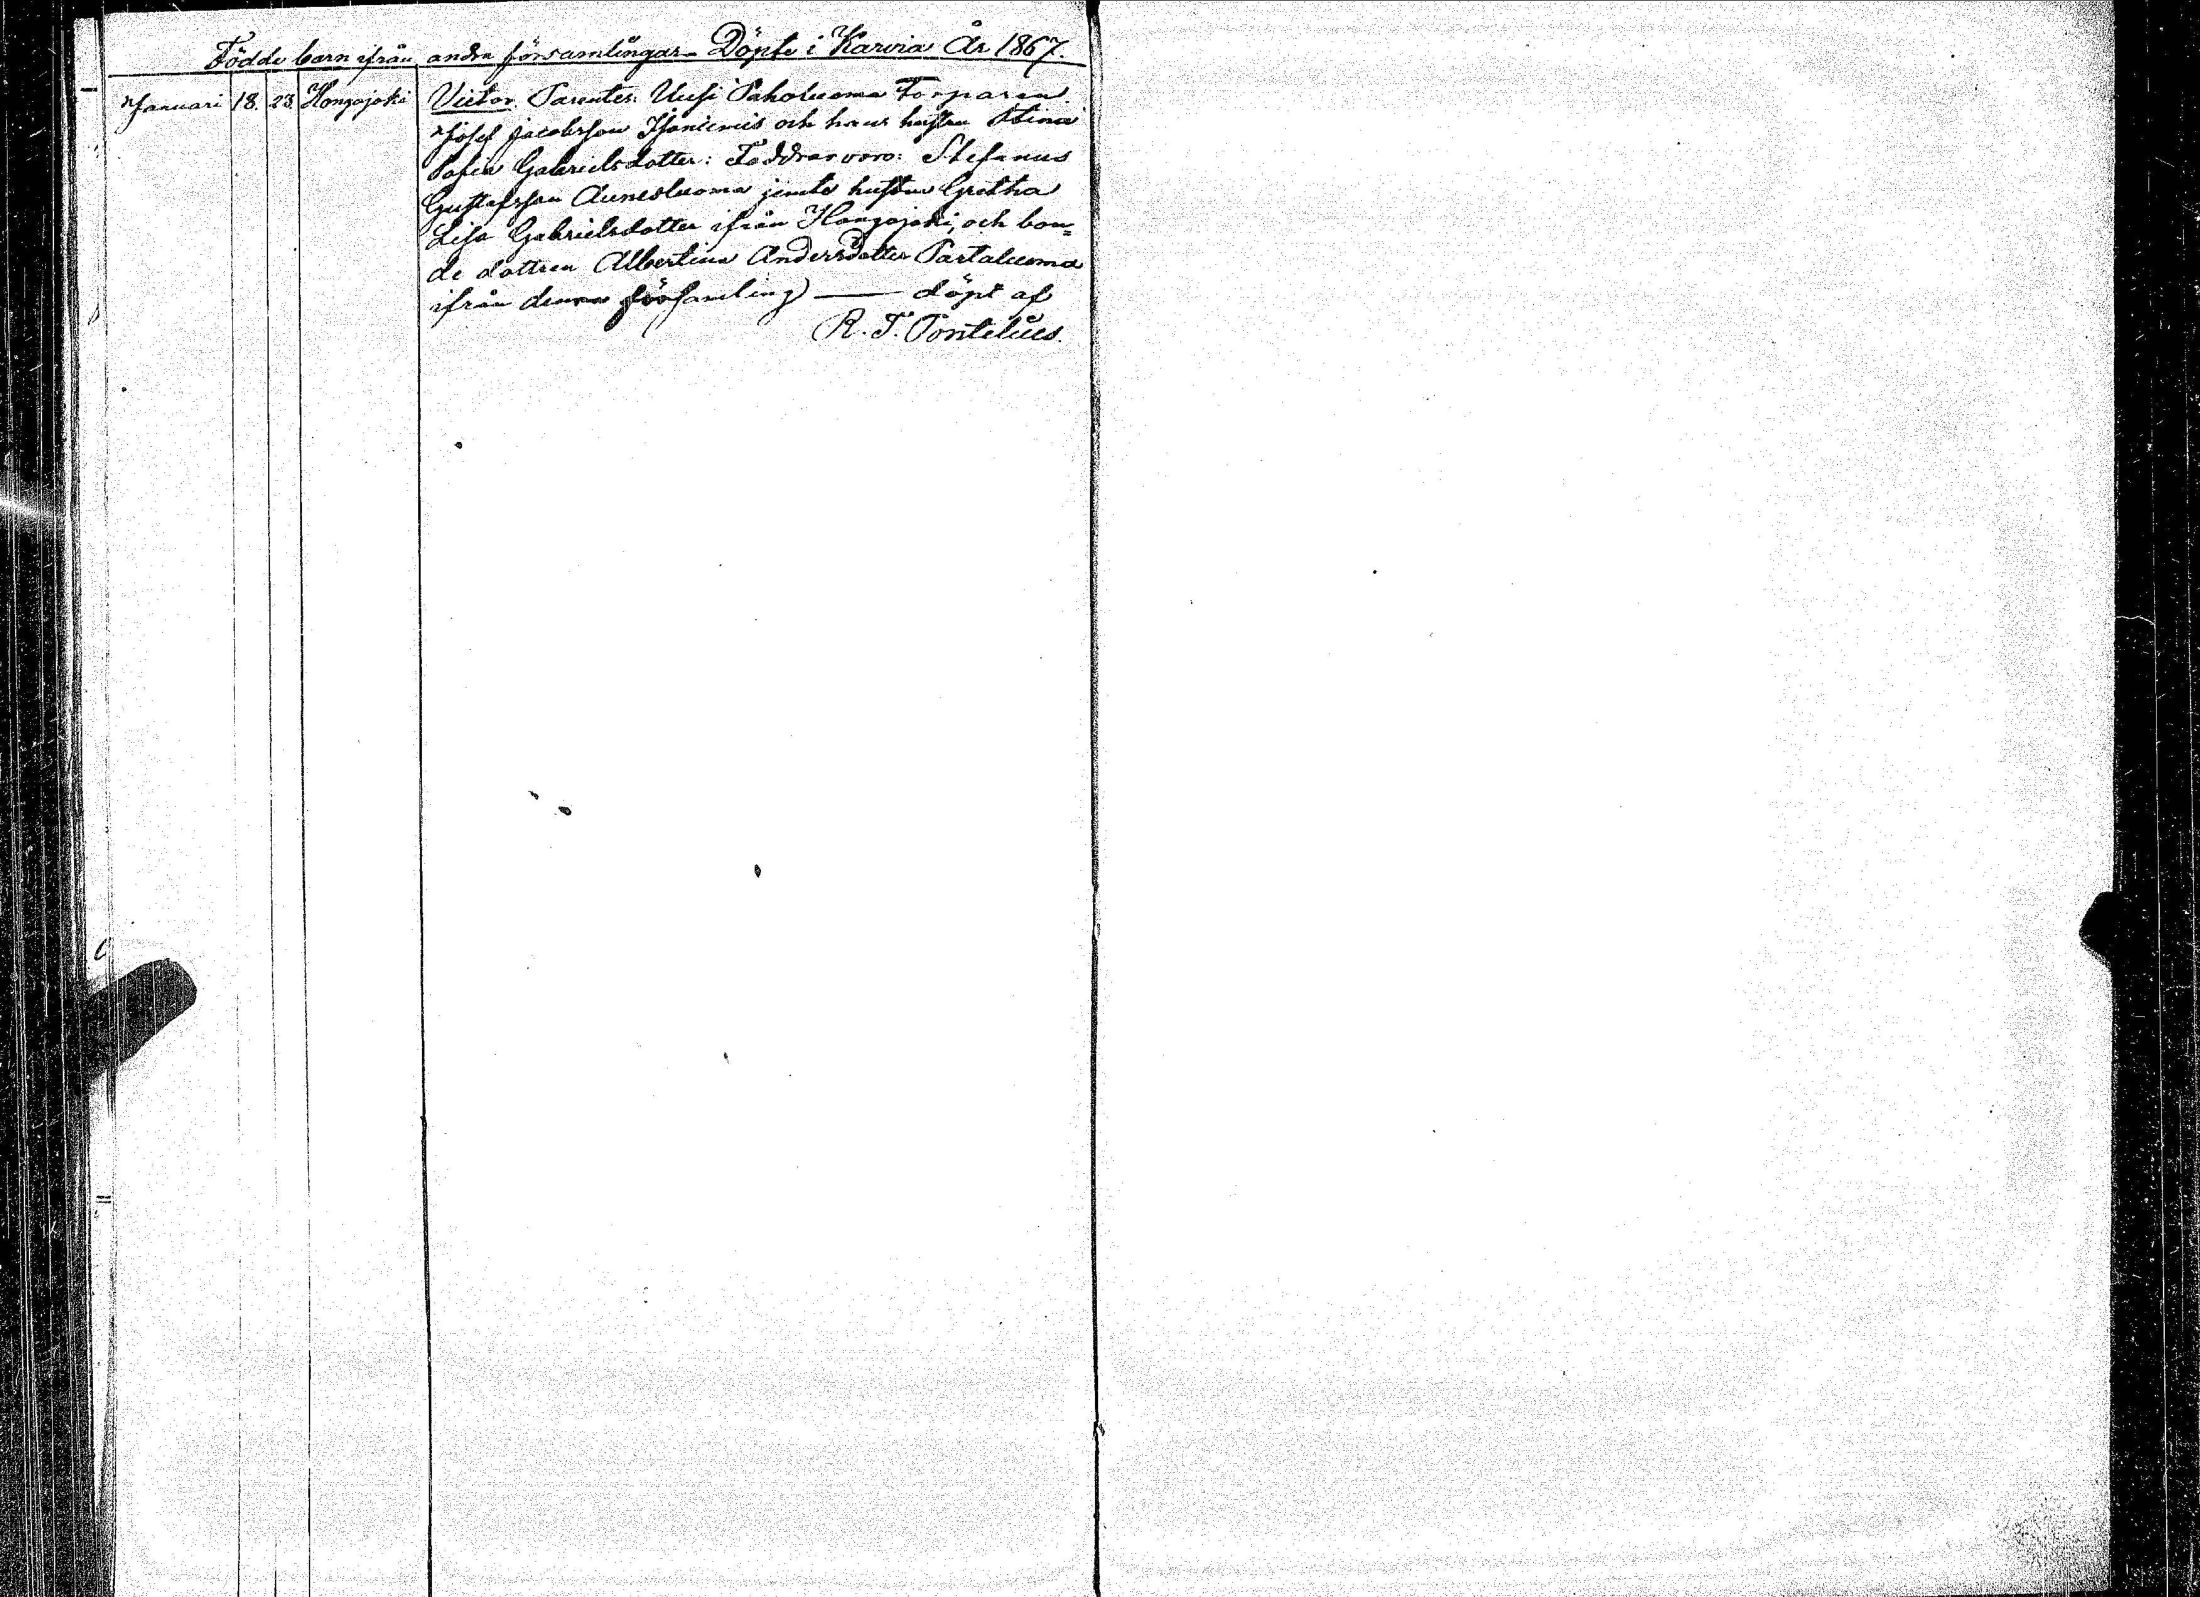 Födde barn ifrån andra församlingar - Döpte i Karvia År 1867.
Januari 18. 23. Hongojoki Victor. Parentes: Uusi Paholuoma Torparen
Josef Jacobsson Isoniemis och hans hustru Stina
Sofia Gabrielsdotter: Faddrar voro: Stefanus
Gustafsson Aunesluoma jemte hustru Gretha
Lisa Gabrielsdotter ifrån Hongojoki, och bon=
de dottren Albertina Andersdotter Partaluoma
ifrån denna församling — döpt af
R. T. Pontelius.